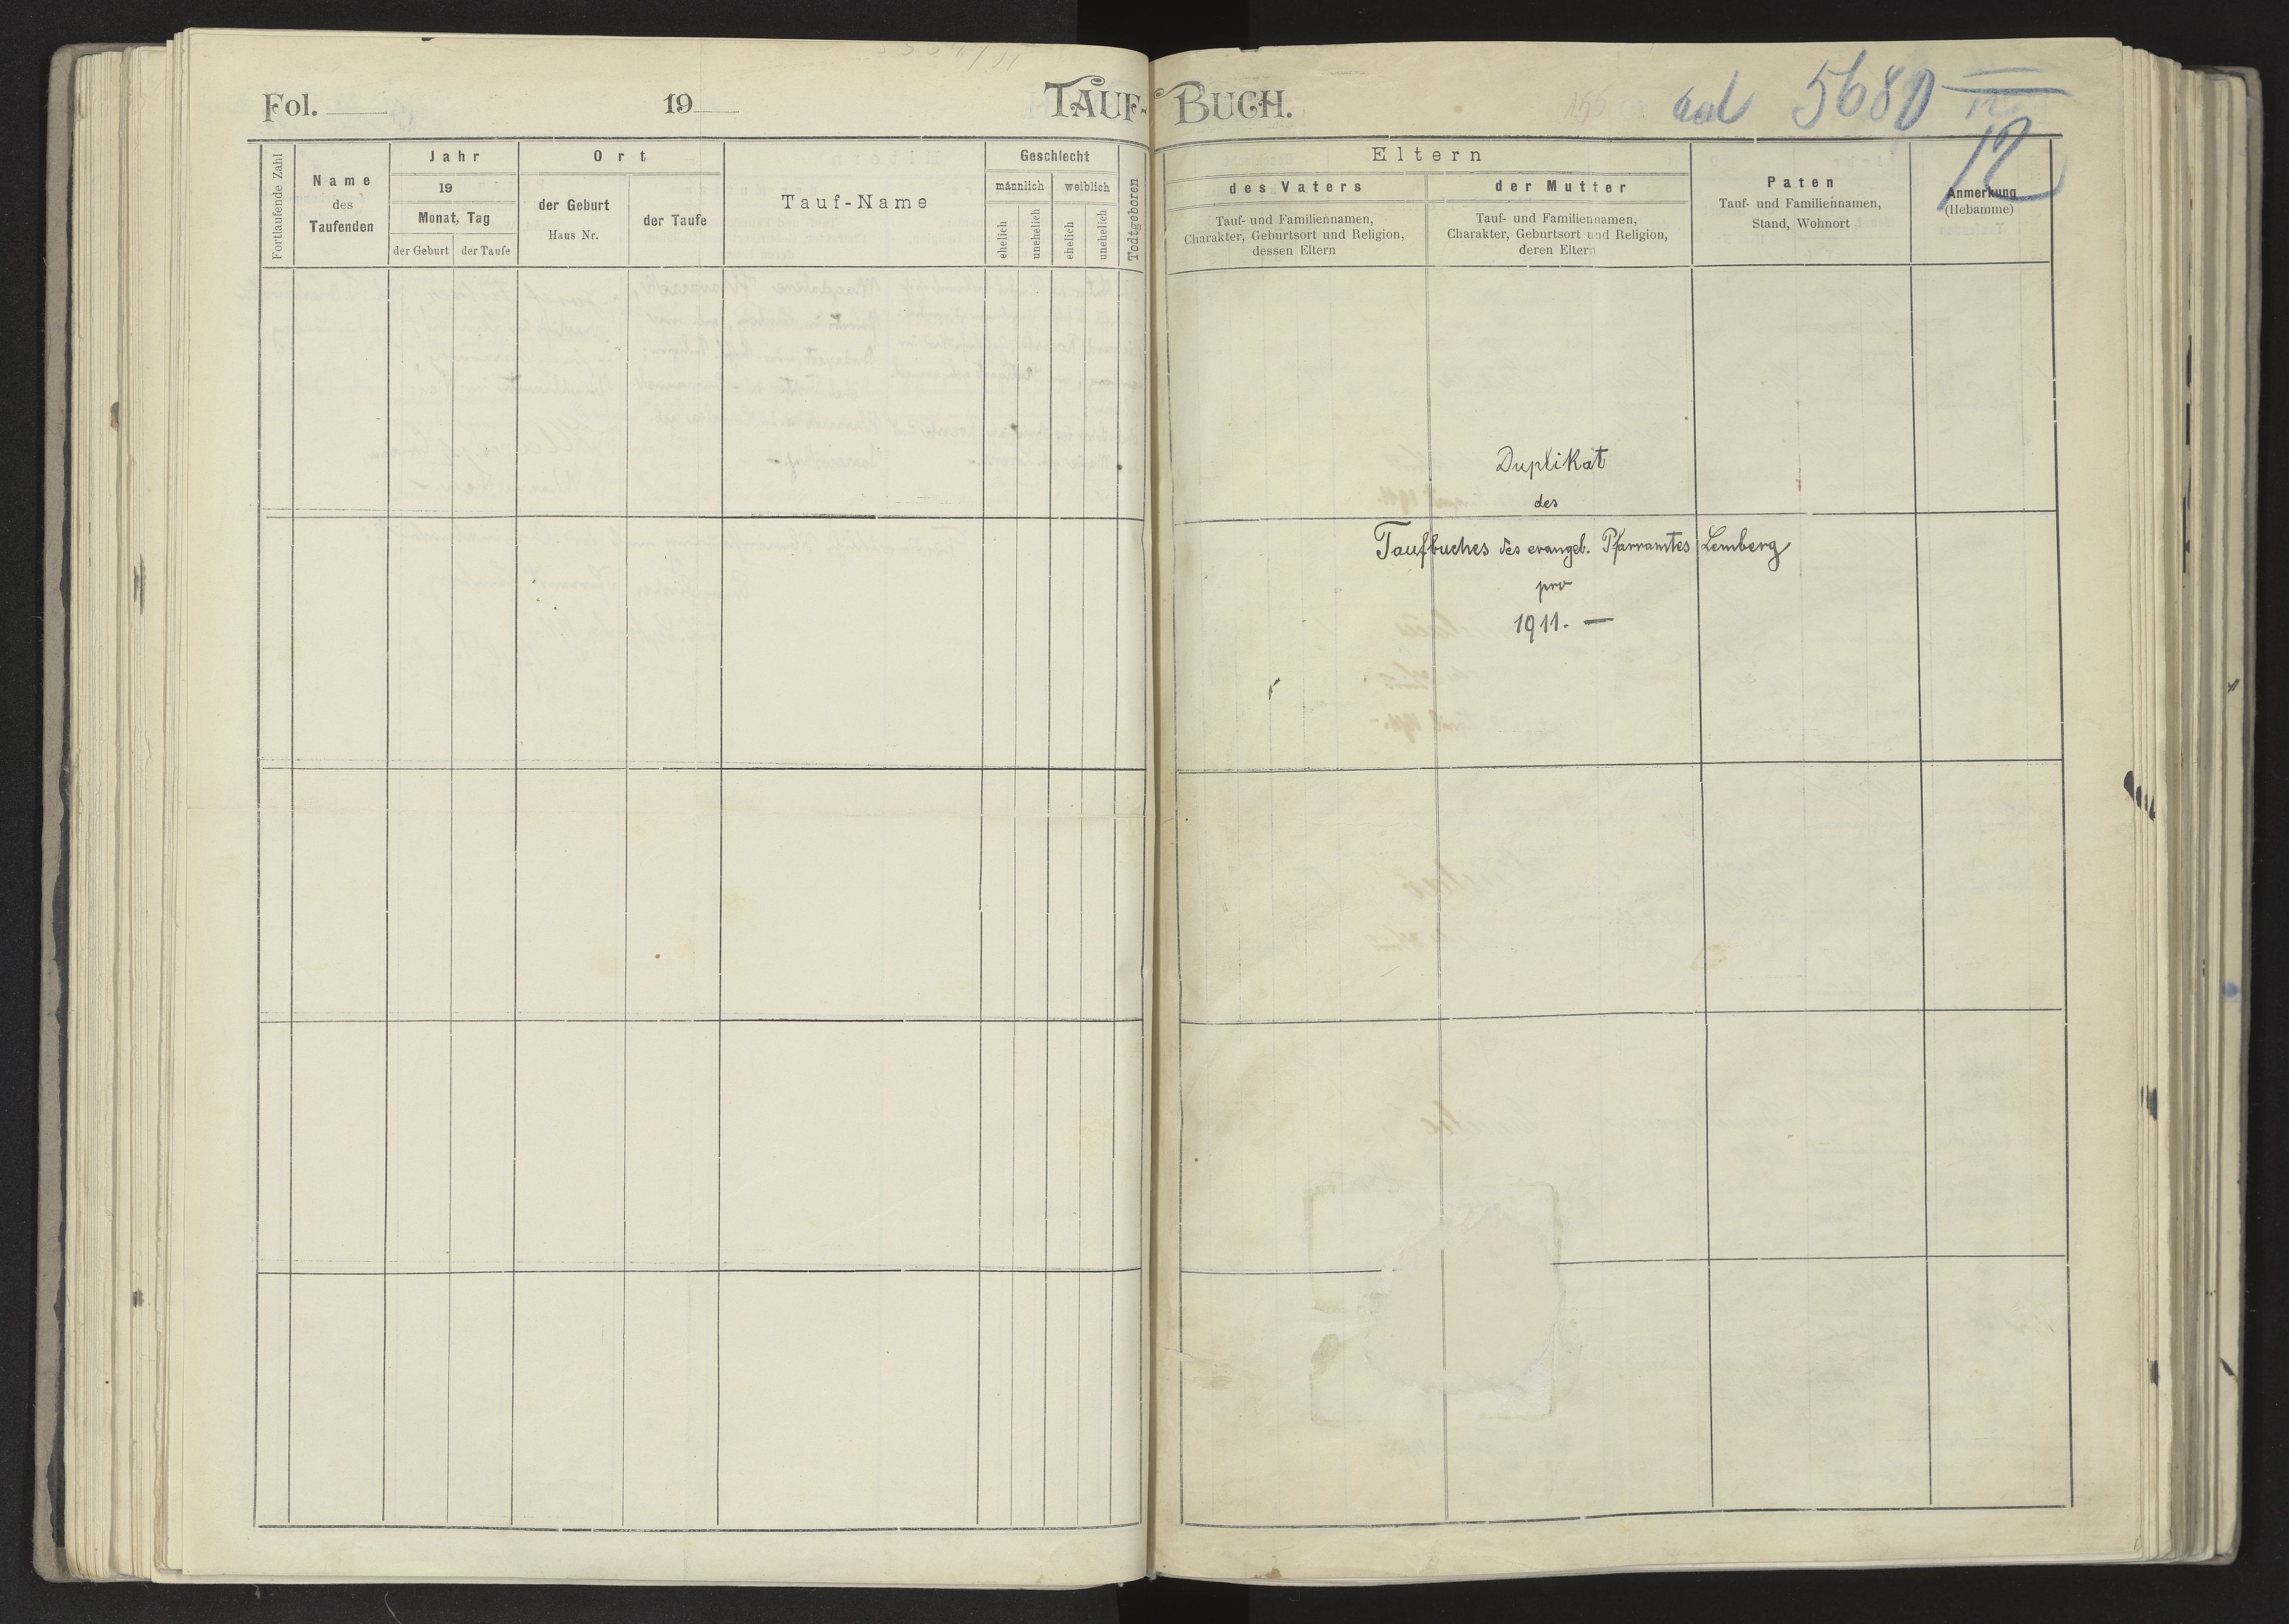 Fol.
19
TAUF-BUCH.
ad 5680
12
Fortlaufende Zahl
Name
des
Taufenden
Jahr
19
Monat, Tag
der Geburt
der Taufe
Ort
der Geburt
Haus Nr.
der Taufe
Tauf-Name
Geschlecht
männlich
weiblich
ehelich
unehelich
ehelich
unehelich
Todtgeboren
Eltern
des Vaters
Tauf- und Familiennamen,
Charakter, Geburtsort und Religion,
dessen Eltern
der Mutter
Tauf- und Familiennamen,
Charakter, Geburtsort und Religion,
deren Eltern
Paten
Tauf- und Familiennamen,
Stand, Wohnort
Anmerkung
(Hebamme)
Duplikat
des
Taufbuches des evangel. Pfarramtes Lemberg
pro
1911. —